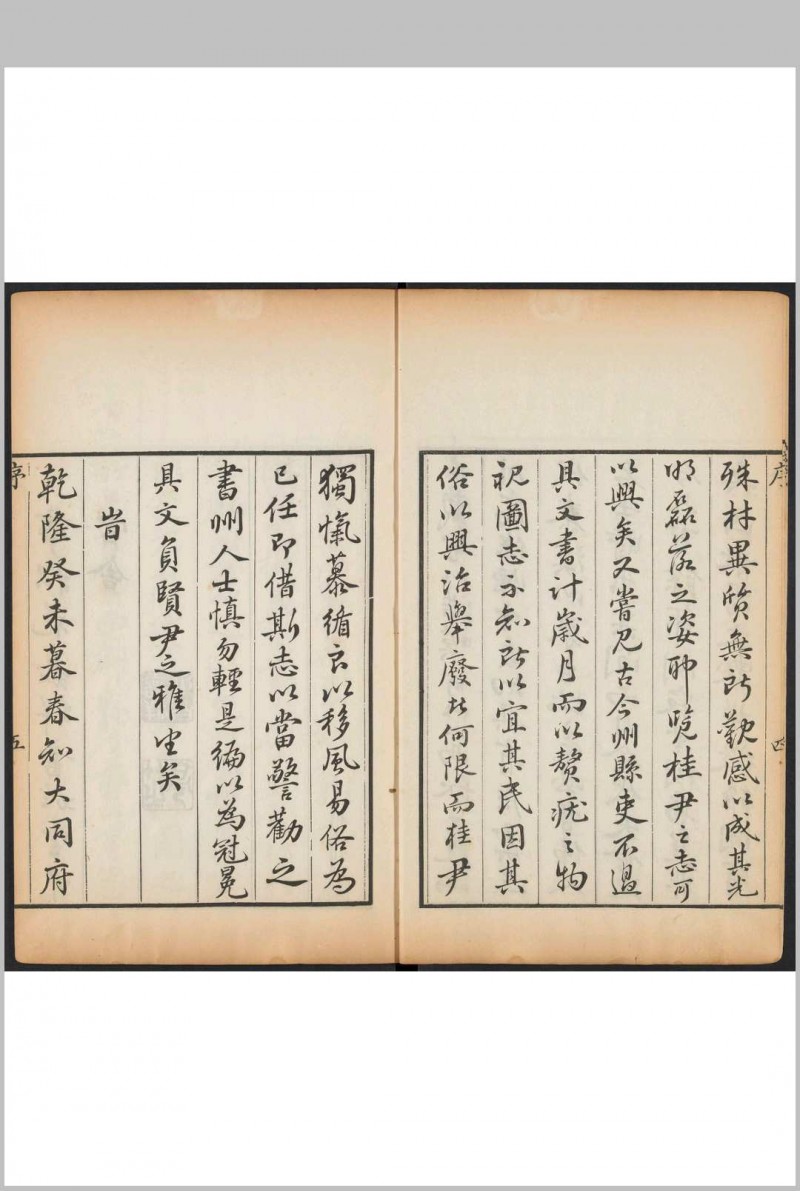 序
四
殊材異質無所歡感以成其光
明磊落之姿耶覽桂尹之志可
以興矣又嘗見古今州縣吏不過
具文書計歲月而以贅疣之物
視圖志不知所以宜其民因其
俗以興治舉廢者何限而桂尹
獨慨慕循良以移風易俗為
已任即借斯志以當警勸之
書州人士慎勿輕是編以為冠冕
具文負賢尹之雅矣
旹
乾隆癸未暮春知大同府
序
五